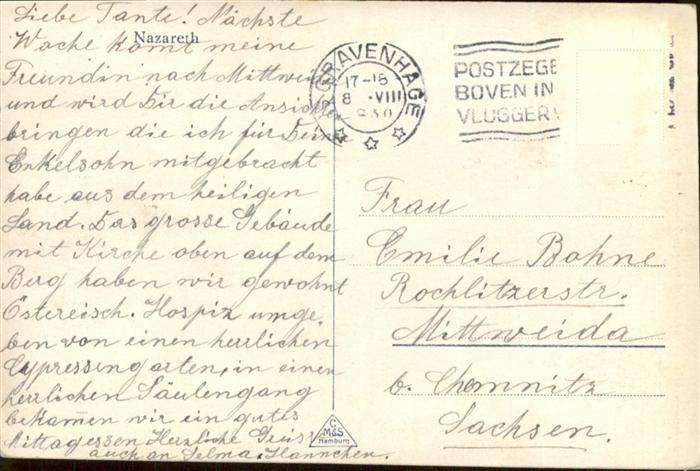 Liebe Tante! Nächste
Nazareth
Woche komt meine
Freundin nach Mittweida
und wird Dir die Ansichten
bringen die ich für Deine
Enkelsohn mitgebracht
habe aus dem heiligen
Land. Das grosse Gebäude
mit Kirche oben auf dem
Berg haben wir gewohnt
Östereisch. Hospiz umge,
ben von einen herrlichen
Cypressengarten, in einen
herrlichen Säulengang
bekamen wir ein gutes
Mittagessen Herzliche Grüsse
auch an Selma, Hannchen.
'S GRAVENHAGE
17-18
8 VIII
POSTZEGE
BOVEN IN
VLUGGER
Frau
Emilie Bohne
Rochlitzerstr.
Mittweida
b. Chemnitz
Sachsen.
C
M&S
Hamburg